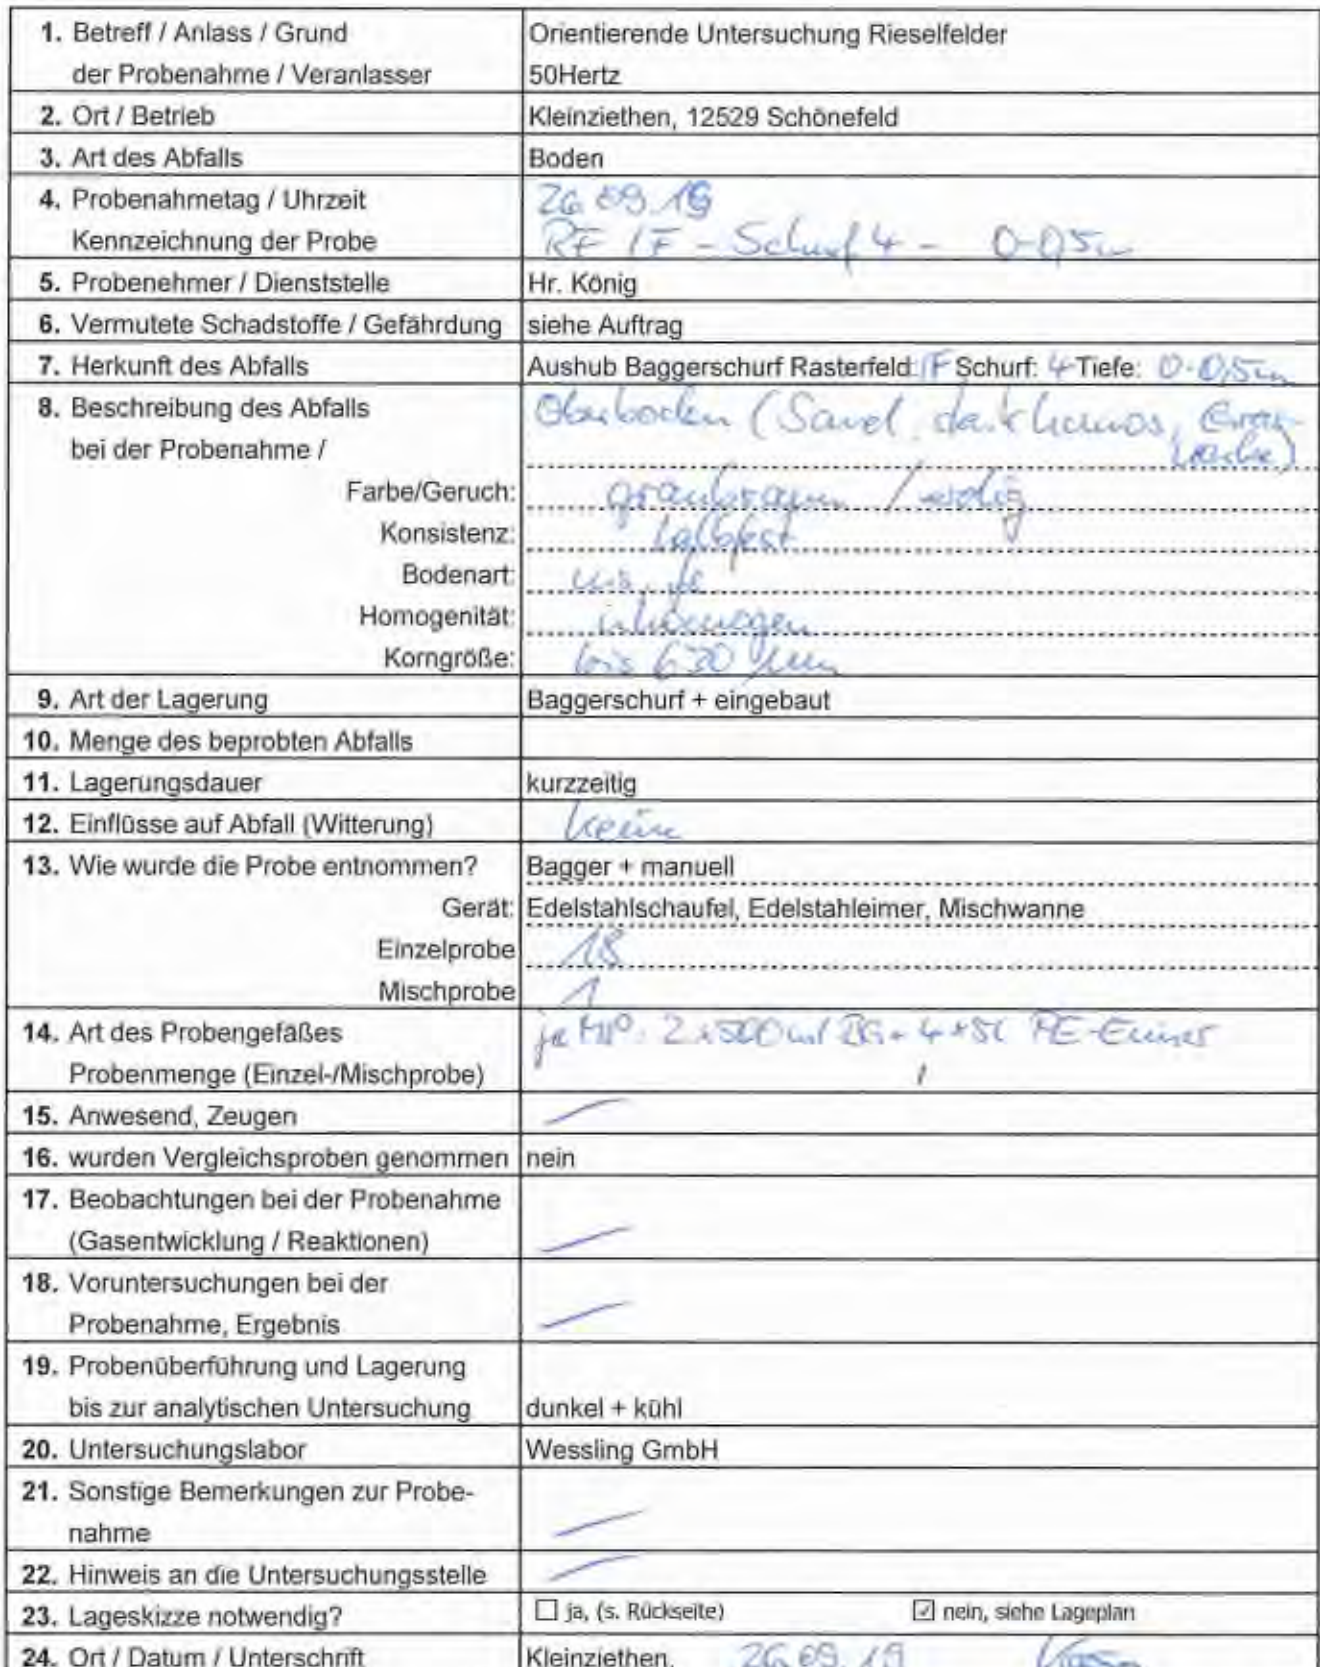 1. Betreff / Anlass / Grund Orientierende Untersuchung Rieselfelder
der Probenahme / Veranlasser 50Hertz
2. Ort / Betrieb Kleinziethen, 12529 Schönefeld
3. Art des Abfalls Boden
4. Probenahmetag / Uhrzeit 26.09.19
Kennzeichnung der Probe RF 1F - Schurf 4 - 0-0,5m
5. Probenehmer / Dienststelle Hr. König
6. Vermutete Schadstoffe / Gefährdung siehe Auftrag
7. Herkunft des Abfalls Aushub Baggerschurf Rasterfeld: 1F Schurf: 4 Tiefe: 0-0,5m
8. Beschreibung des Abfalls Oberboden (Sand, stark humos, Gras-
bei der Probenahme /
Farbe/Geruch: graubraun / erdig
Konsistenz: halbfest
Bodenart:
Homogenität: inhomogen
Korngröße: bis 630 µm
9. Art der Lagerung Baggerschurf + eingebaut
10. Menge des beprobten Abfalls
11. Lagerungsdauer kurzzeitig
12. Einflüsse auf Abfall (Witterung) keine
13. Wie wurde die Probe entnommen? Bagger + manuell
Gerät: Edelstahlschaufel, Edelstahleimer, Mischwanne
Einzelprobe 18
Mischprobe 1
14. Art des Probengefäßes je MP: 2x500ml BG + 4x5l PE-Eimer
Probenmenge (Einzel-/Mischprobe)
15. Anwesend, Zeugen
16. wurden Vergleichsproben genommen nein
17. Beobachtungen bei der Probenahme
(Gasentwicklung / Reaktionen)
18. Voruntersuchungen bei der
Probenahme, Ergebnis
19. Probenüberführung und Lagerung
bis zur analytischen Untersuchung dunkel + kühl
20. Untersuchungslabor Wessling GmbH
21. Sonstige Bemerkungen zur Probe-
nahme
22. Hinweis an die Untersuchungsstelle
23. Lageskizze notwendig? ☐ ja, (s. Rückseite) ☑ nein, siehe Lageplan
24. Ort / Datum / Unterschrift Kleinziethen, 26.09.19